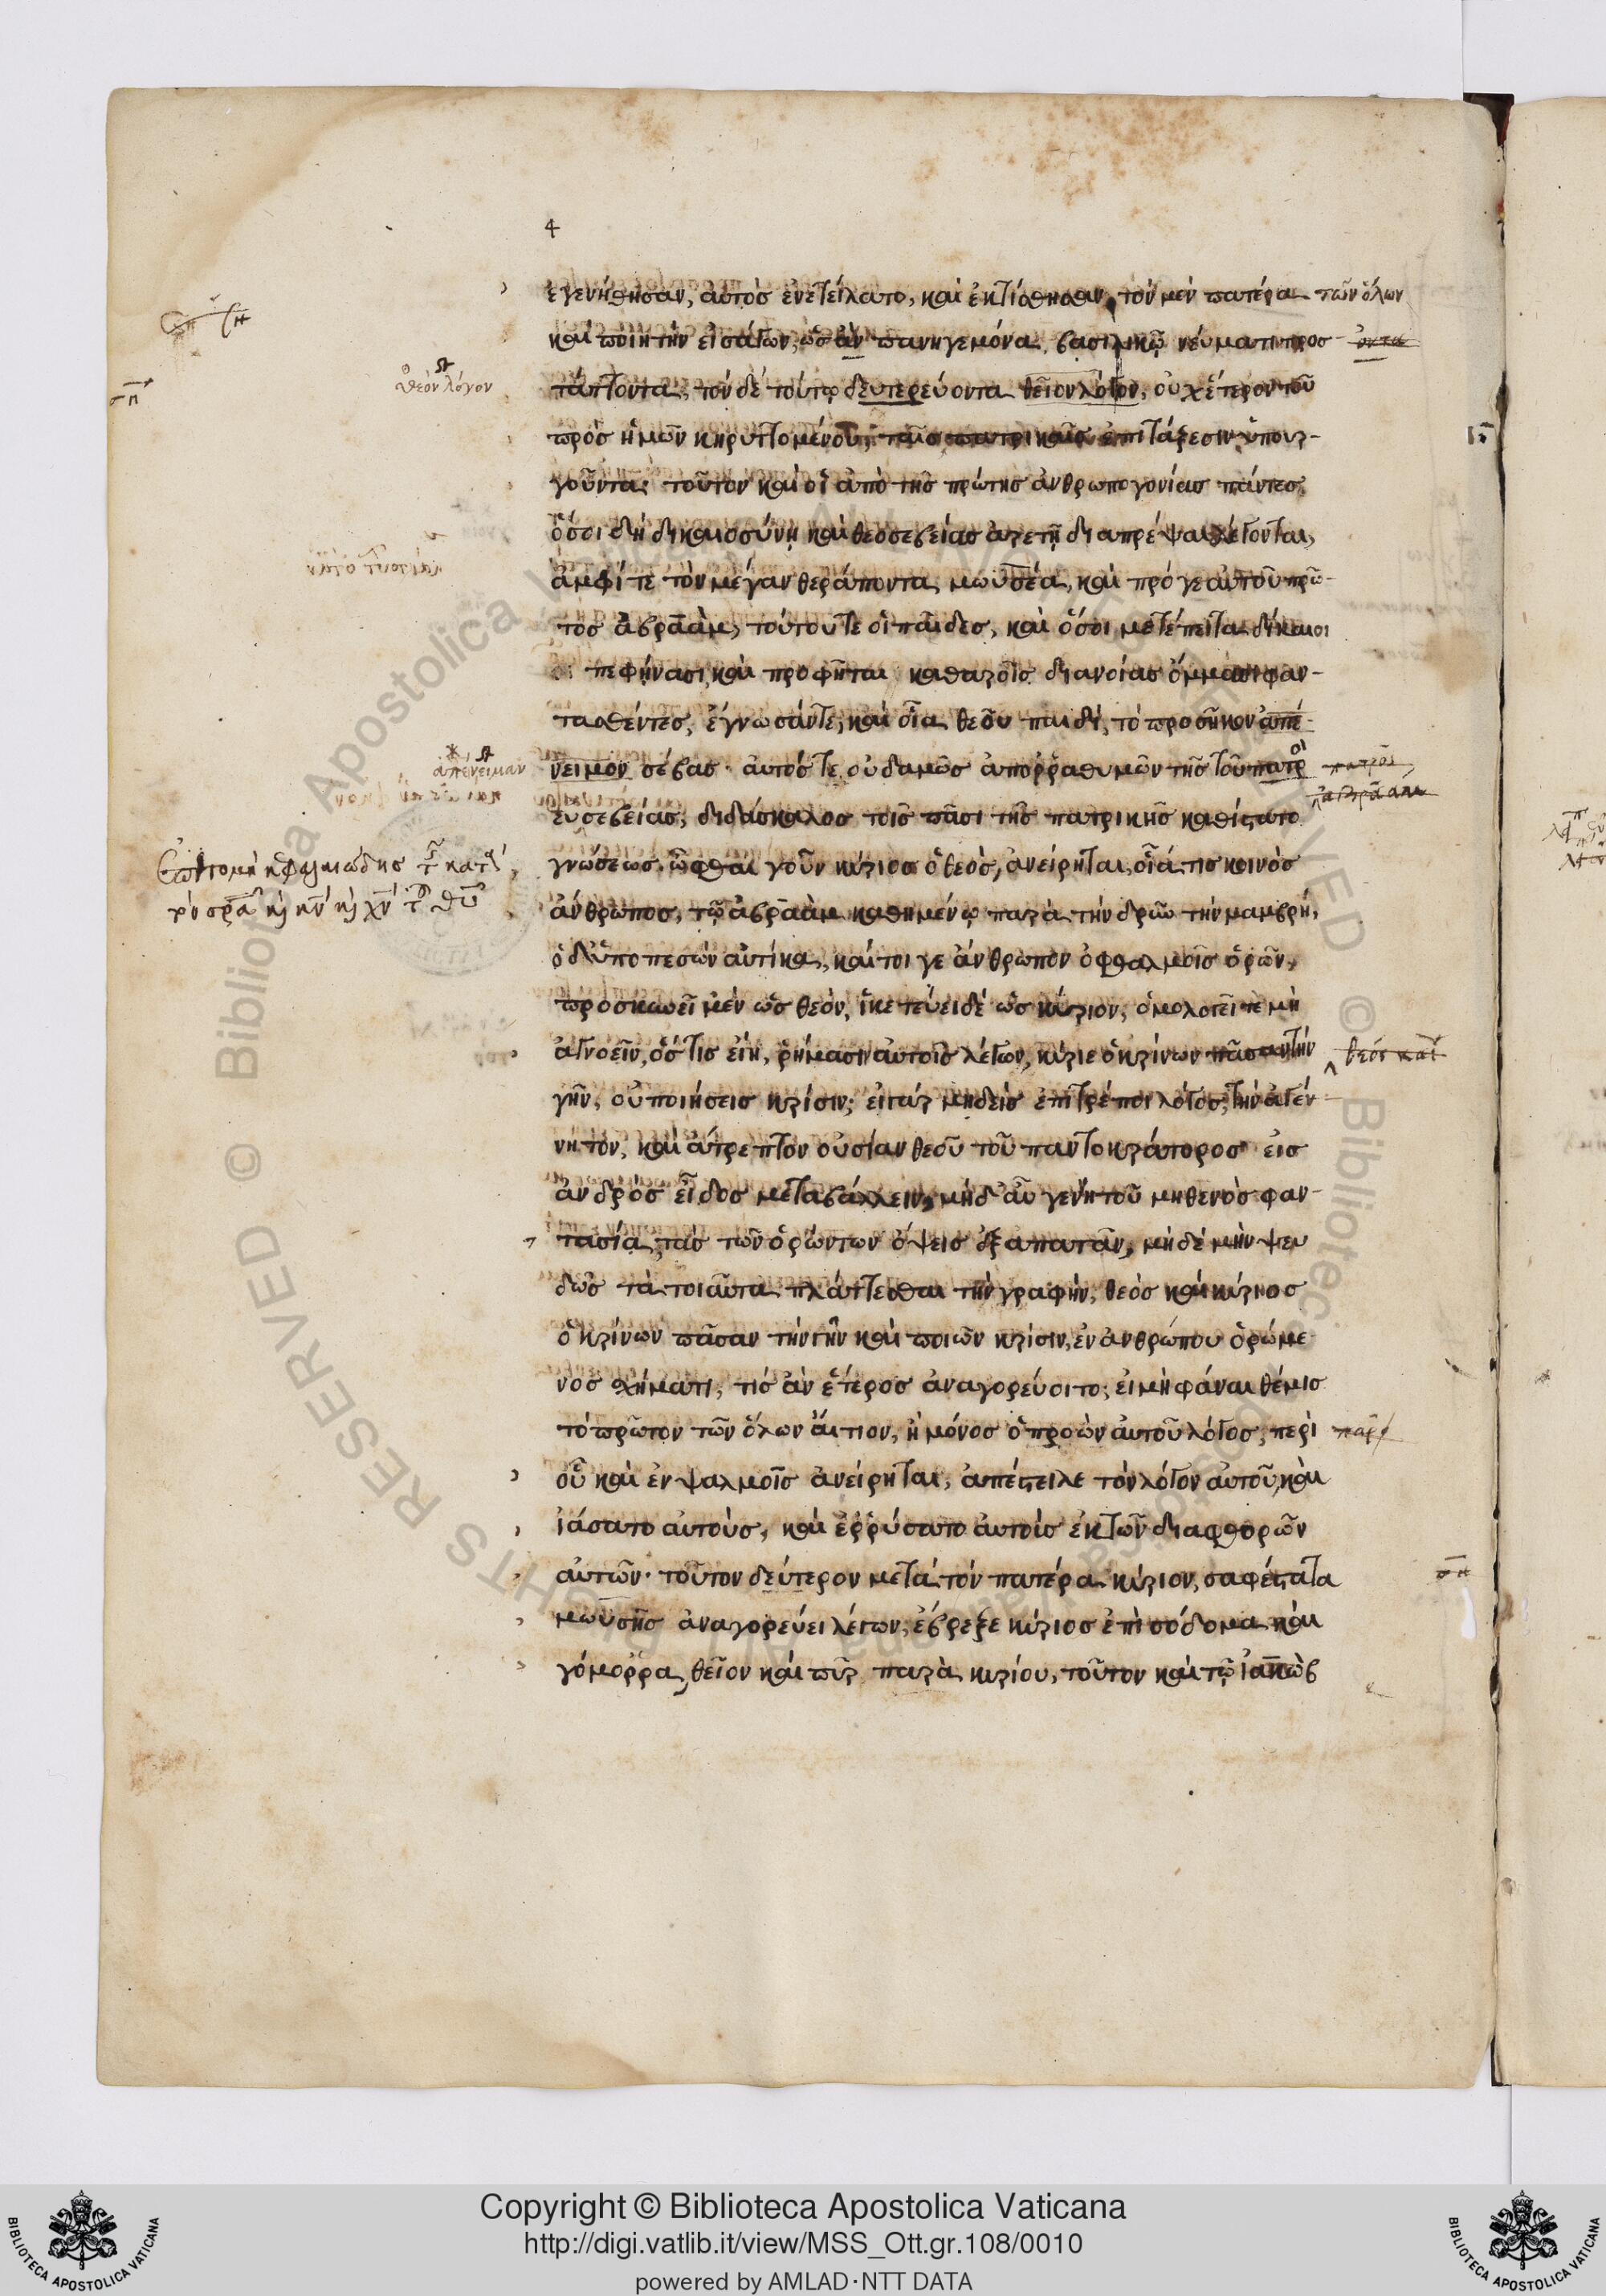 4
ἐγενήθησαν, αὐτὸς ἐνετείλατο, καὶ ἐκτίσθησαν, τὸν μὲν πατέρα τῶν ὅλων
καὶ ποιητὴν εἰσάγων, ὡς ἂν πανηγεμόνα, βασιλικῷ νεύματι προσ-
θεὸν λόγον
τάττοντα, τὸν δὲ τούτῳ δευτερεύοντα θεῖον λόγον, οὐχ ἕτερον τοῦ
πρὸς ἡμῶν κηρυττομένου, ταῖς πατρικαῖς ἐπιτάξεσιν ὑπουρ-
γοῦντα· τοῦτον καὶ οἱ ἀπὸ τῆς πρώτης ἀνθρωπογονίας πάντες,
ὅσοι δὴ δικαιοσύνῃ καὶ θεοσεβείας ἀρετῇ διαπρέψαι λέγονται,
ἀμφί τε τὸν μέγαν θεράποντα μωϋσέα, καὶ πρό γε αὐτοῦ πρῶ-
τος ἀβραὰμ, τούτου τε οἱ παῖδες, καὶ ὅσοι μετέπειτα δίκαιοι
πεφήνασι, καὶ προφῆται καθαροῖς διανοίας ὄμμασι φαν-
τασθέντες, ἔγνωσάν τε, καὶ οἷα θεοῦ παιδὶ, τὸ προσῆκον ἀπέ-
ἀπένειμαν
νειμον σέβας· αὐτός τε οὐδαμῶς ἀπορραθυμῶν τῆς τοῦ πατρ πατρὸς
εὐσεβείας, διδάσκαλος τοῖς πᾶσι τῆς πατρικῆς καθίστατο
γνώσεως. ὦφθαι γοῦν κύριος ὁ θεὸς, ἀνείρηται, οἷά τις κοινὸς
ἄνθρωπος, τῷ ἀβραὰμ καθημένῳ παρὰ τὴν δρῦν τὴν μαμβρὴ,
ὁ δ' ὑποπεσὼν αὐτίκα, καίτοι γε ἄνθρωπον ὀφθαλμοῖς ὁρῶν,
προσκυνεῖ μὲν ὡς θεὸν, ἱκετεύει δὲ ὡς κύριον, ὁμολογεῖ τε μὴ
ἀγνοεῖν, ὅστις εἴη, ῥήμασιν αὐτοῖς λέγων, κύριε ὁ κρίνων πᾶσαν τὴν
γῆν, οὐ ποιήσεις κρίσιν; εἰ γὰρ μηδεὶς ἐπιτρέποι λόγος, τὴν ἀγέν-
νητον, καὶ ἄτρεπτον οὐσίαν θεοῦ τοῦ παντοκράτορος εἰς
ἀνδρὸς εἶδος μεταβάλλειν, μηδ' αὖ γενητοῦ μηθενὸς φαν-
τασίᾳ, τὰς τῶν ὁρώντων ὄψεις ἐξαπατᾶν, μηδὲ μὴν ψευ
δῶς τὰ τοιαῦτα πλάττεσθαι τὴν γραφὴν, θεὸς καὶ κύριος
ὁ κρίνων πᾶσαν τὴν γῆν καὶ ποιῶν κρίσιν, ἐν ἀνθρώπου ὁρώμε
νος σχήματι, τίς ἂν ἕτερος ἀναγορεύοιτο, εἰ μὴ φάναι θέμις
τὸ πρῶτον τῶν ὅλων αἴτιον, ἢ μόνος ὁ προὼν αὐτοῦ λόγος, περὶ
οὗ καὶ ἐν ψαλμοῖς ἀνείρηται, ἀπέστειλε τὸν λόγον αὐτοῦ, καὶ
ἰάσατο αὐτοὺς, καὶ ἐρρύσατο αὐτοὺς ἐκ τῶν διαφθορῶν
αὐτῶν· τοῦτον δεύτερον μετὰ τὸν πατέρα κύριον, σαφέστατα
μωϋσῆς ἀναγορεύει λέγων, ἔβρεξε κύριος ἐπὶ σόδομα καὶ
γόμορρα, θεῖον καὶ πῦρ παρὰ κυρίου, τοῦτον καὶ τῷ ἰακὼβ
Copyright © Biblioteca Apostolica Vaticana
http://digi.vatlib.it/view/MSS_Ott.gr.108/0010
powered by AMLAD·NTT DATA
BIBLIOTECA APOSTOLICA VATICANA
BIBLIOTECA APOSTOLICA VATICANA